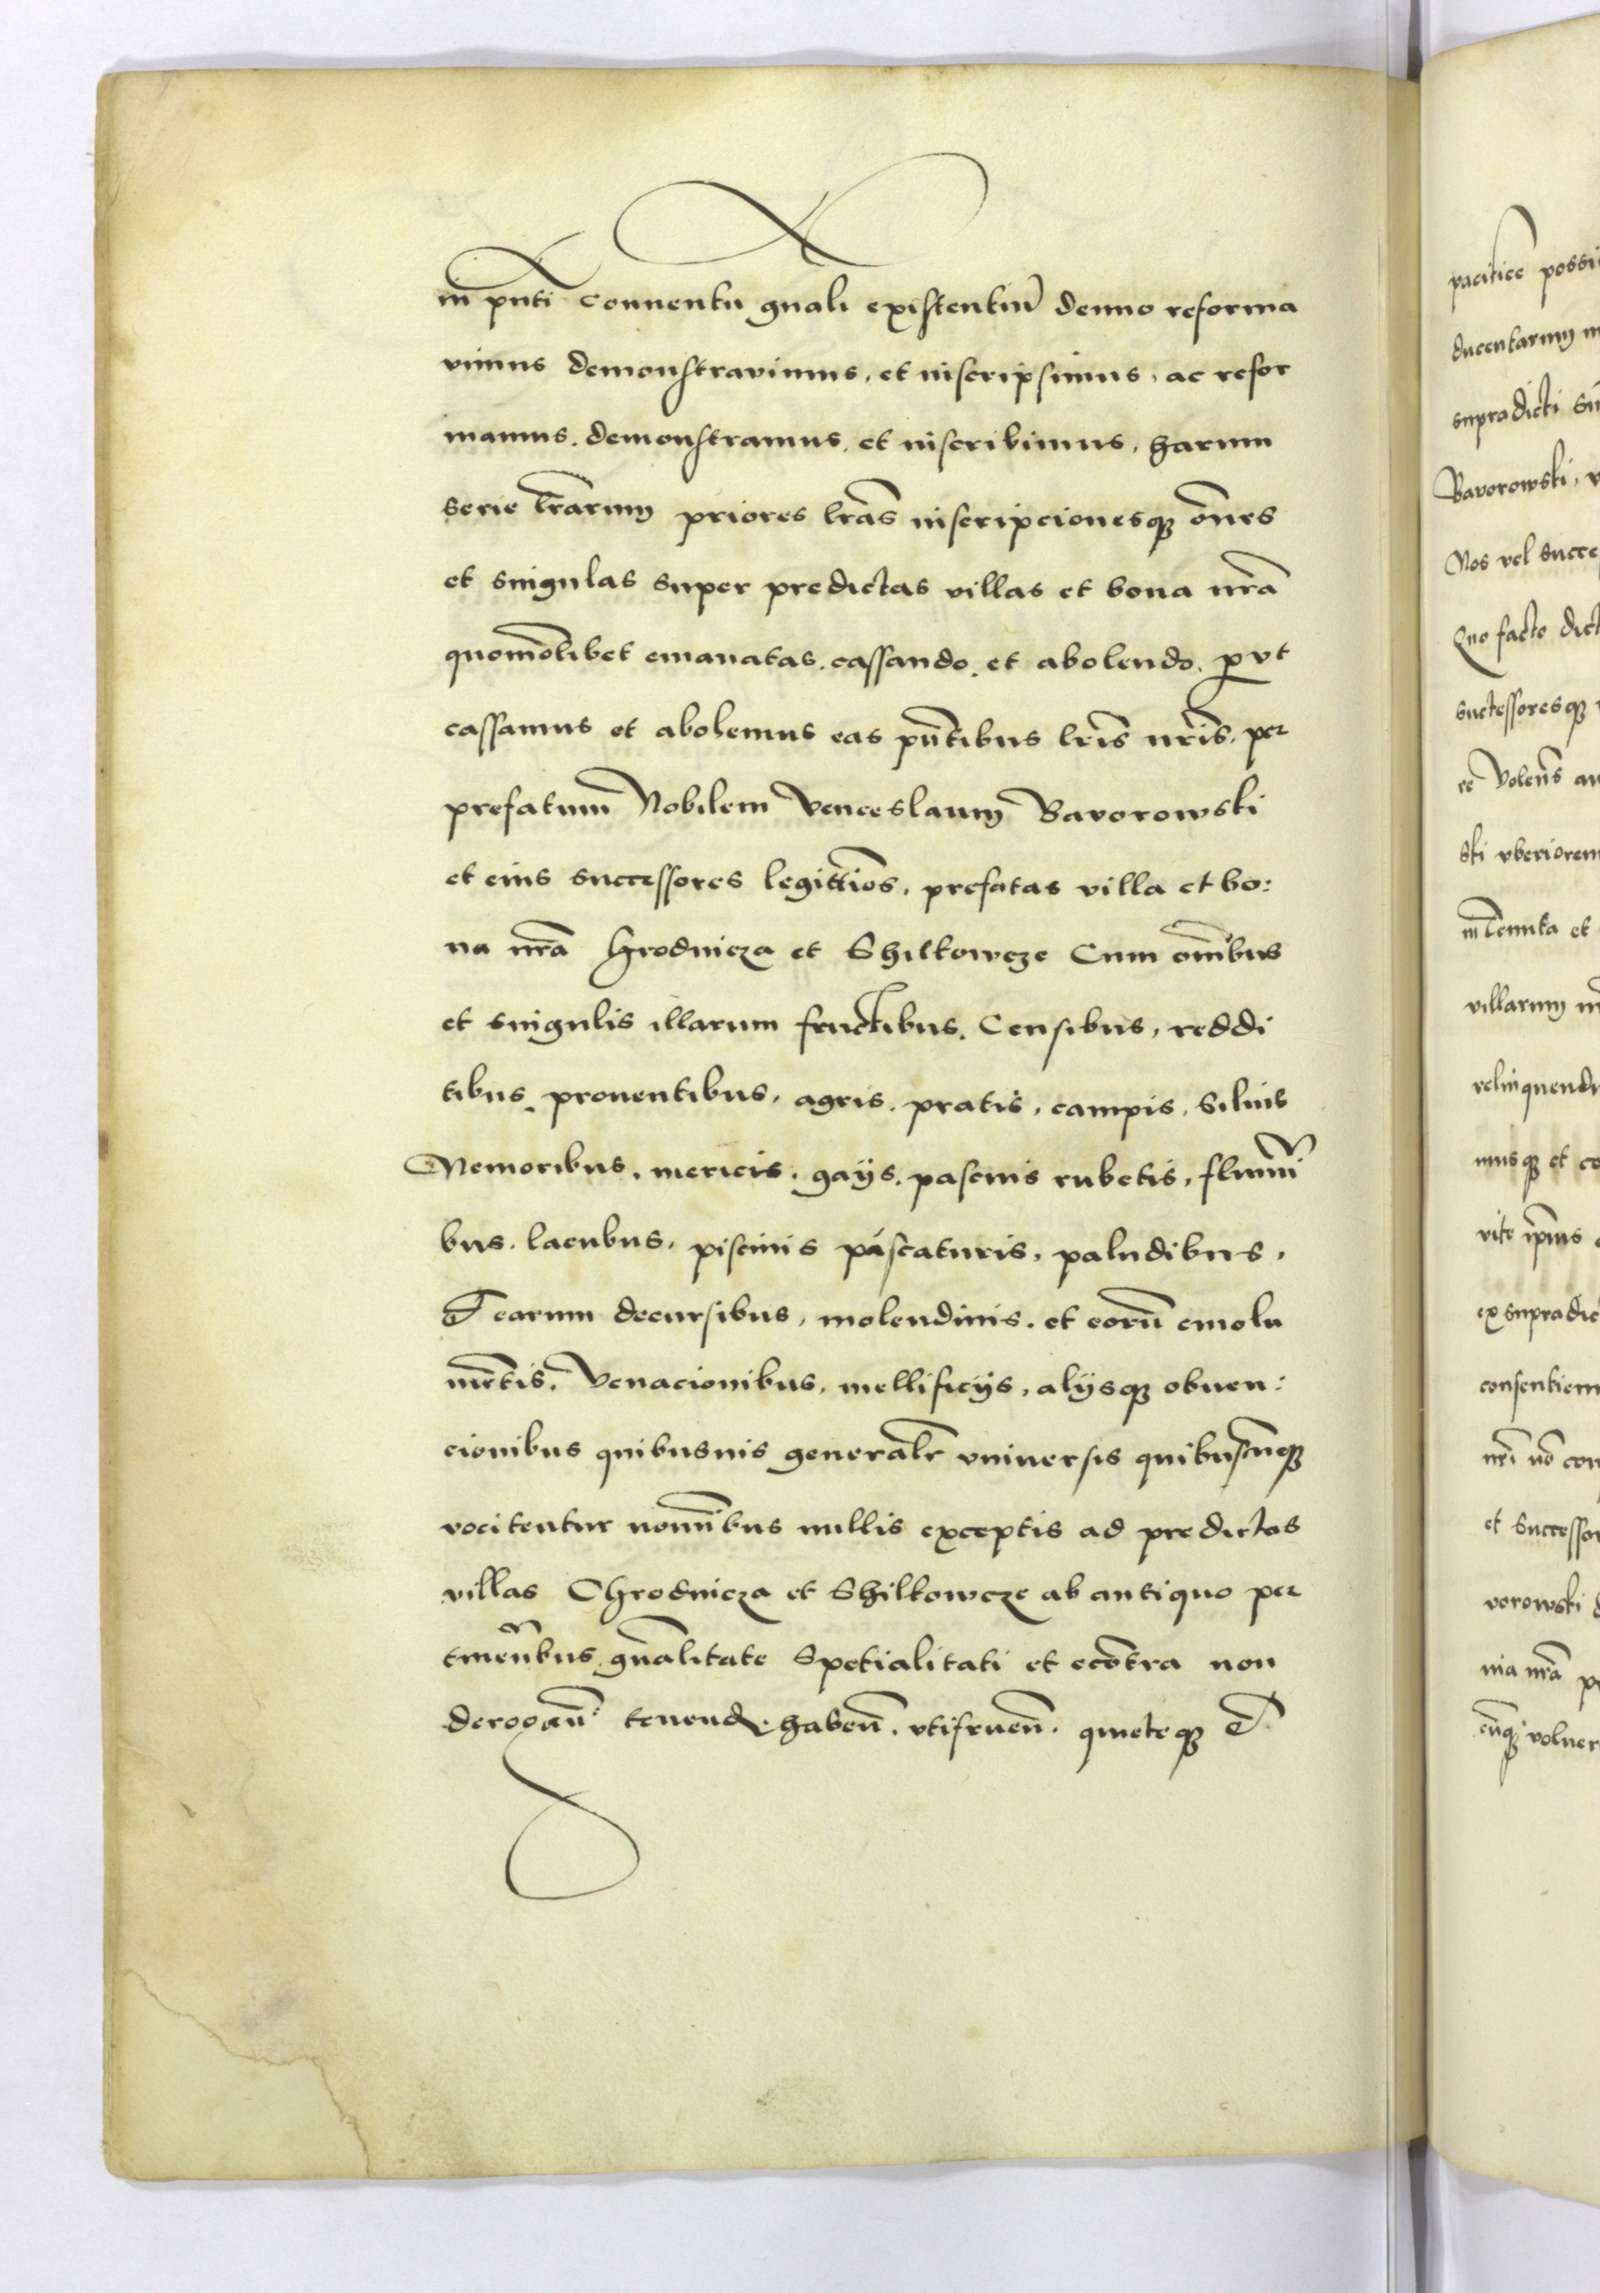 in pñti conuentu gnali existentiũ denuo reforma
uimus demonstrauimus, et inscripsimus, ac refor
mamus, demonstramus, et inscribimus, harum
serie lr̃arum priores lr̃as inscripcionesq; oẽs
et singulas super predictas villas et bona nr̃a
quomõlibet emanatas, cassando, et abolendo, p vt
cassamus et abolemus eas pñtibus lr̃is nr̃is, per
prefatum Nobilem Venceslaum Bavorowski
et eius successores legittiõs, prefatas villa et bo:
na nr̃a hrodnicza et Shilkowcze Cum omĩbus
et singulis illarum fructibus, Censibus, reddi
tibus, prouentibus, agris, pratis, campis, Siluis
Nemoribus, mericis, gays, pascuis rubetis, flumĩ
bus, lacubus, piscinis páscaturis, paludibus,
Et earum decursibus, molendinis, et eorũ emolu
mẽtis, Venacionibus, mellificijs, alijsq; obuen:
cionibus quibusuis generalr̃ vniuersis quibuscũq;
vocitentur nomĩbus nullis exceptis ad predictas
villas Chrodnicza et Shilkowcze ab antiquo per
tineñbus gñalitate Spetialitati et ecõtra non
derogañ: tenend, habeñ, vtifrueñ, quieteq; et
pacifice possi
ducentarum m
supradicti
Bavorowski, v
Nos vel succe
Quo facto dict
successoresq;
re Volens au
ski vberiorem
in Tenuta et
villarum
relinquendu
musq; et co
vite ip̃ius
ex supradic
consentiem
nr̃i nõ con
et Successor
vorowski
nia nr̃a p
cũq; voluer